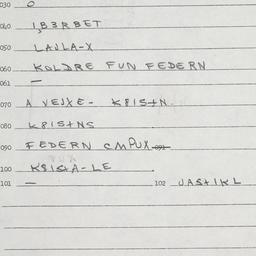 030 0
040 I,B3RBET
050 LAJLA-X
060 KOLDRE FUN FEDERN
061 —
070 A VEJXE- K8IS+N.
080 K8IS+NS
090 FEDERN CMPUX
100 K8IS+A-LE
101 — 102 JAS+IKL